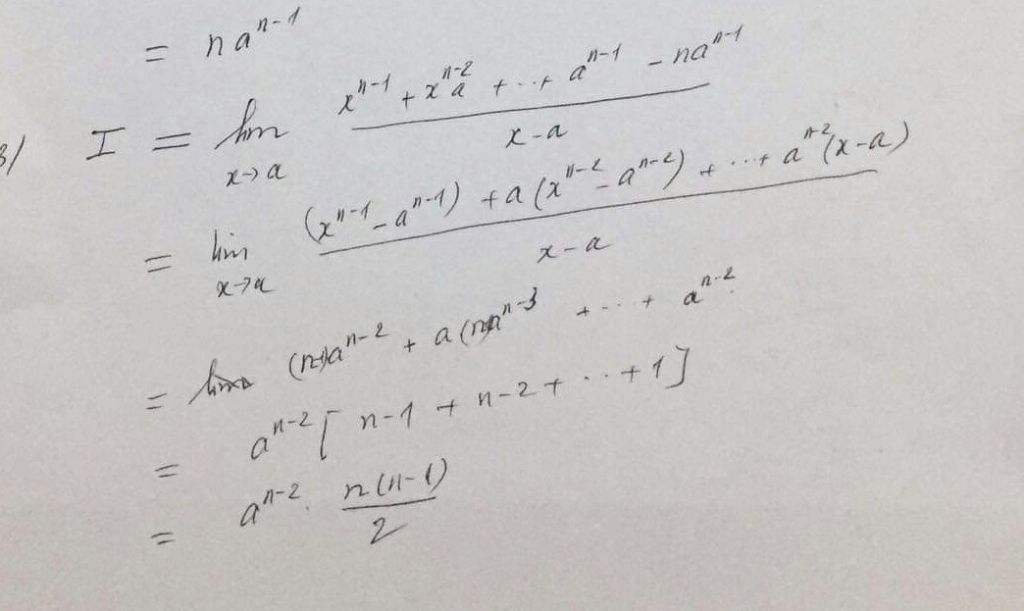 = na^{n-1}
3/ I = lim_{x→a} \frac{x^{n-1} + x^{n-2}a + ... + a^{n-1} - na^{n-1}}{x-a}
= lim_{x→a} \frac{(x^{n-1} - a^{n-1}) + a(x^{n-2} - a^{n-2}) + ... + a^{n-2}(x-a)}{x-a}
= (n-1)a^{n-2} + a(n a^{n-3} + ... + a^{n-2}.
= a^{n-2} [ n-1 + n-2 + ... + 1 ]
= a^{n-2} . \frac{n(n-1)}{2}